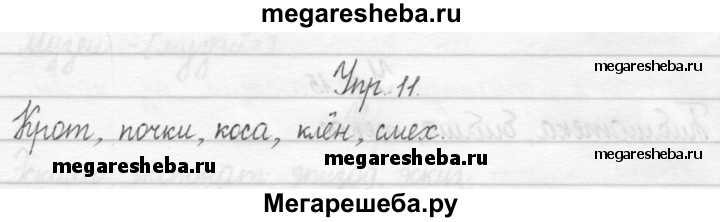 megaresheba.ru
Упр. 11.
megaresheba.ru
Крот, почки, коса, клён, смех.
megaresheba.ru
megaresheba.ru
Мегарешеба.ру